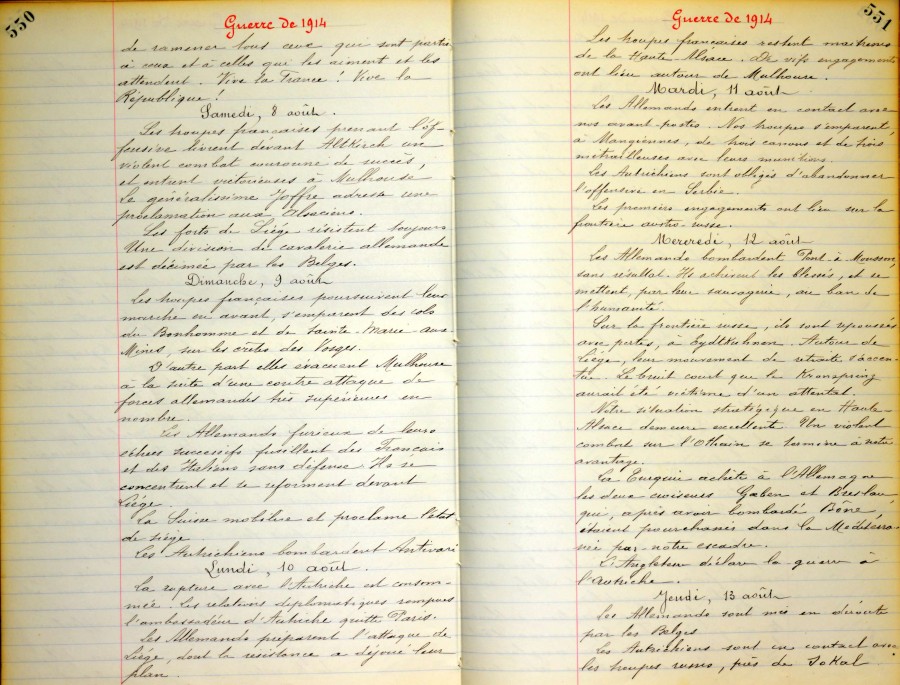 550
Guerre de 1914
de ramener tous ceux qui sont partis
à ceux et à celles qui les aiment et les
attendent. Vive la France ! Vive la
République !
Samedi, 8 août.
Les troupes françaises prenant l'of-
fensive livrent devant Altkirch un
violent combat couronné de succès,
et entrent victorieuses à Mulhouse
Le généralissime Joffre adresse une
proclamation aux Alsaciens.
Les forts de Liége résistent toujours
Une division de cavalerie allemande
est décimée par les Belges.
Dimanche, 9 août
Les troupes françaises poursuivent leur
marche en avant, s'emparent des cols
du Bonhomme et de Sainte-Marie aux
Mines, sur les crêtes des Vosges.
D'autre part elles évacuent Mulhouse
à la suite d'une contre attaque de
forces allemandes très supérieures en
nombre.
Les Allemands furieux de leurs
échecs successifs fusillent des Français
et des Italiens sans défense. Ils se
concentrent et se reforment devant
Liége.
La Suisse mobilise et proclame l'état
de siège.
Les Autrichiens bombardent Antivari
Lundi, 10 août.
La rupture avec l'Autriche est consom-
mée. Les relations diplomatiques rompues
l'ambassadeur d'Autriche quitte Paris.
Les Allemands préparent l'attaque de
Liége, dont la résistance a déjoué leur
plan.
551
Guerre de 1914
Les troupes françaises restent maîtresses
de la Haute-Alsace. De vifs engagements
ont lieu autour de Mulhouse.
Mardi, 11 août.
Les Allemands entrent en contact avec
nos avant-postes. Nos troupes s'emparent,
à Mangiennes, de trois canons et de trois
mitrailleuses avec leurs munitions.
Les Autrichiens sont obligés d'abandonner
l'offensive en Serbie.
Les premiers engagements ont lieu sur la
frontière austro-russe.
Mercredi, 12 août
Les Allemands bombardent Pont-à-Mousson,
sans résultat. Ils achèvent les blessés, et se
mettent, par leur sauvagerie, au ban de
l'humanité.
Sur la frontière russe, ils sont repoussés
avec pertes, à Eydtkuhnen. Autour de
Liége, leur mouvement de retraite s'accen-
tue. Le bruit court que le Kronprinz
aurait été victime d'un attentat.
Notre situation stratégique en Haute-
Alsace demeure excellente. Un violent
combat sur l'Othain se termine à notre
avantage.
La Turquie achète à l'Allemagne
les deux croiseurs Gœben et Breslau
qui, après avoir bombardé Bône,
étaient pourchassés dans la Méditerra-
née par notre escadre.
L'Angleterre déclare la guerre à
l'Autriche.
Jeudi, 13 août
Les Allemands sont mis en déroute
par les Belges
Les Autrichiens sont en contact avec
les troupes russes, près de Sokal.